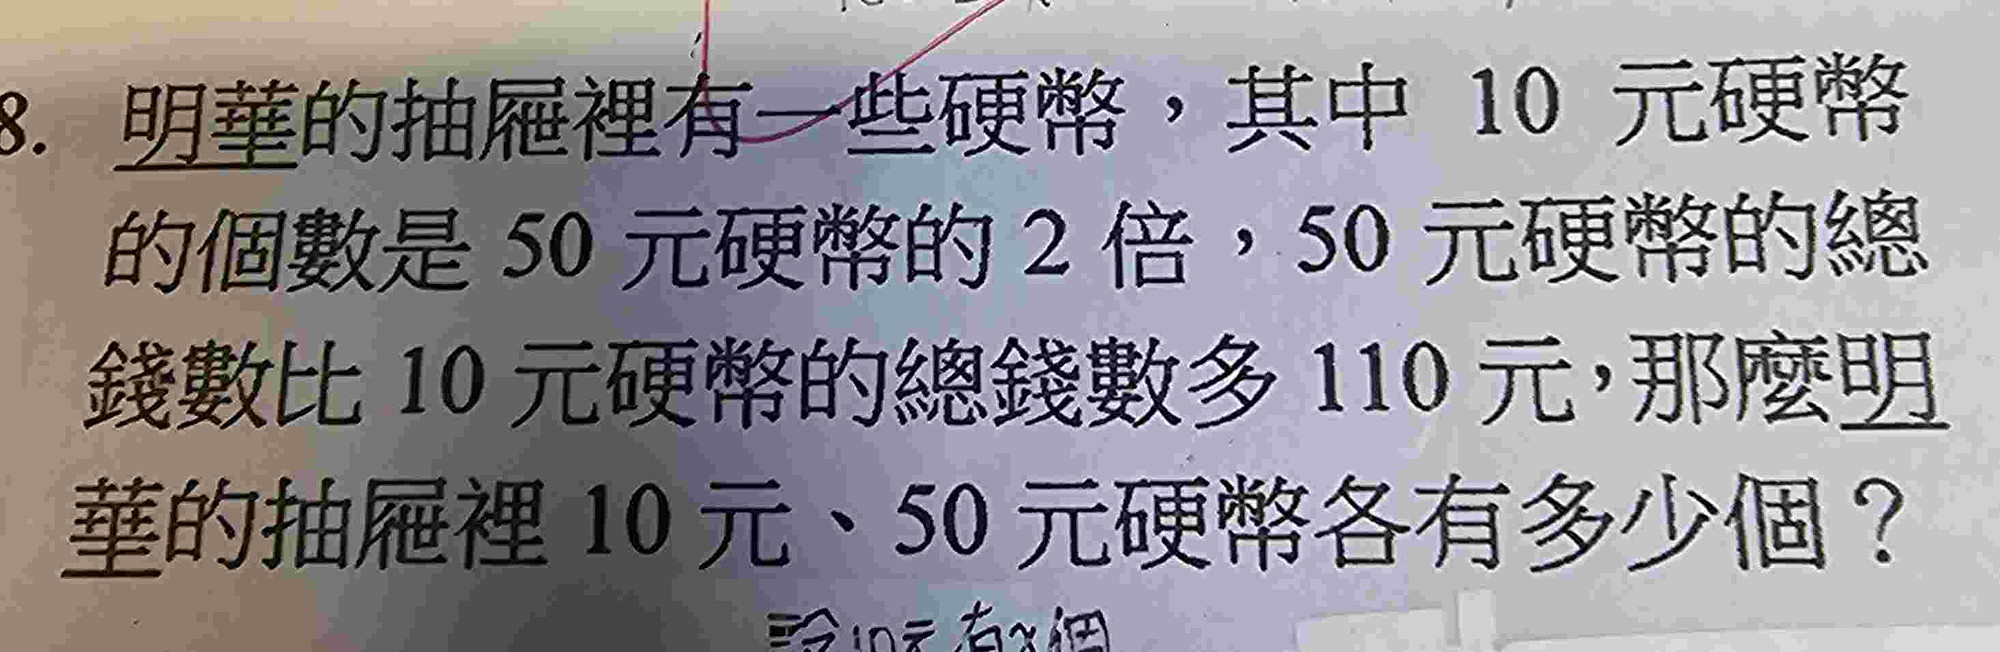 8. 明華的抽屜裡有一些硬幣，其中 10 元硬幣
的個數是 50 元硬幣的 2 倍，50 元硬幣的總
錢數比 10 元硬幣的總錢數多 110 元，那麼明
華的抽屜裡 10 元、50 元硬幣各有多少個？
設10元有x個